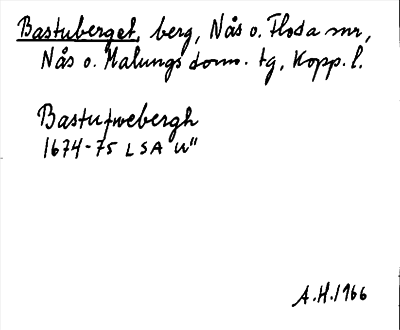 Bastuberget, berg, Nås o. Floda snr,
Nås o. Malungs doms. tg, Kopp. l.
Bastufwebergh
1674-75 LSA U"
A.H. 1966